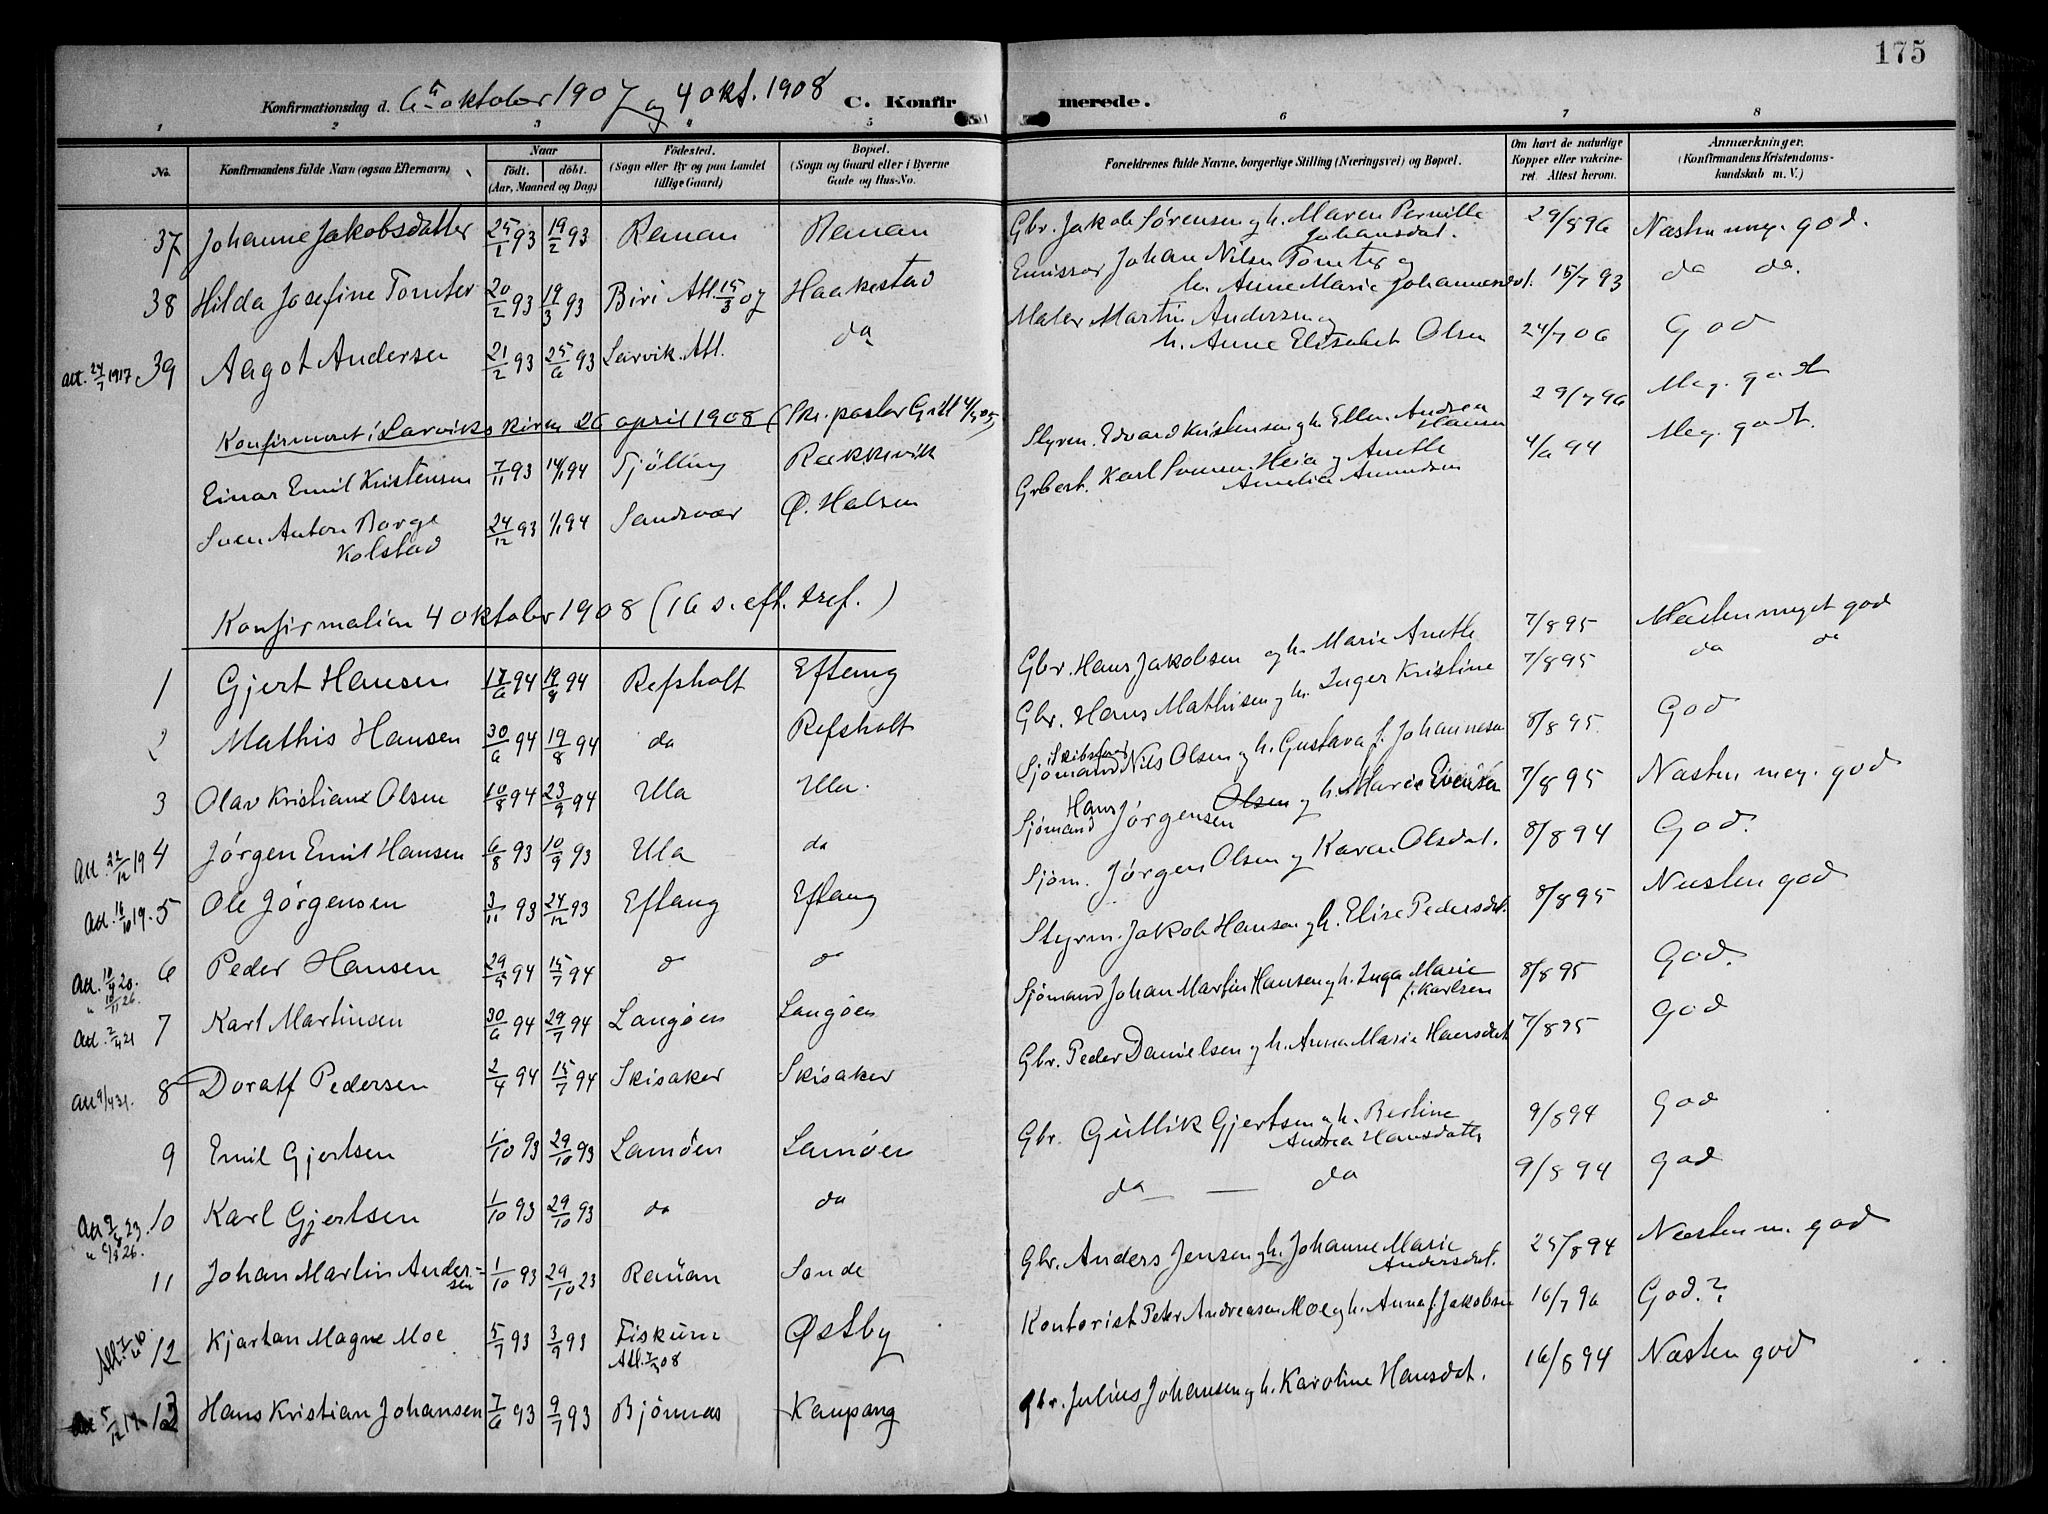 175
Konfirmationsdag d. 6te oktober 1907 og 4 okt. 1908 C. Konfirmerede.
1 2 3 4 5 6 7 8
No. Konfirmandens fulde Navn (ogsaa Efternavn)
Naar født. døbt. (Aar, Maaned og Dag)
Fødested. (Sogn eller By og paa Landet tillige Gaard)
Bopæl. (Sogn og Gaard eller i Byerne Gade og Hus-No.
Forældrenes fulde Navne, borgerlige Stilling (Næringsvei) og Bopæl.
Om havt de naturlige Kopper eller vakcineret. Attest herom.
Anmærkninger. (Konfirmandens Kristendomskundskab m. V.)
37 Johanne Jakobsdatter 25/1 93 19/2 93 Rauan Rauan Gbr. Jakob Sørensen og h. Maren Pernille Johansdat. 29/8 96 Næsten meg. god.
38 Hilda Josefine Tomter 20/2 93 19/3 93 Biri Att. 15/3 07 Haakestad Emissær Johan Nilsen Tomter og h. Anne Marie Johannesdat. 15/7 93 do do.
att. 24/7 1917 39 Aagot Andersen 21/2 93 25/6 93 Larvik. Att. do Maler Martin Andersen og h. Anne Elisabet Olsen 24/7 06 God
Konfirmeret i Larviks kirke 26 april 1908 (Skr. pastor Grill 4/5 08)
Einar Emil Kristensen 7/11 93 14/1 94 Tjølling Rækkevik Styrm. Edvard Kristensen og h. Ellen Andrea Hansen 29/7 96 Meg. godt
Sven Anton Borge Kolstad 24/12 93 1/1 94 Sandsvær Ø. Halsen Grbest. Karl Svensen Heia og Anette Amelia Amundsen 4/6 94 Meg. godt.
Konfirmation 4 oktober 1908 (16 s. eft. tref.)
1 Gjert Hansen 17/6 94 19/8 94 Refsholt Eftang Gbr. Hans Jakobsen og h. Marie Anette 7/8 95 Næsten meget god
2 Mathis Hansen 30/6 94 19/8 94 do Refsholt Gbr. Hans Mathisen og h. Inger Kristine 7/8 95 do do
3 Olav Kristian Olsen 10/8 94 23/9 94 Ula Ula. Sjømand Nils Olsen og h. Gustava f. Johannesen 8/8 95. God
Att. 22/12 19 4 Jørgen Emil Hansen 6/8 93 10/9 93 Ula do Sjømand Hans Jørgensen Olsen og h. Marie Evensen 7/8 95 Næsten meg. god
Att. 16/10 19. 5 Ole Jørgensen 3/11 93 24/12 93 Eftang Eftang Sjøm. Jørgen Olsen og Karen Olsdat. 8/8 94 God.
Att. 10/9 20. " 10/11 26. 6 Peder Hansen 29/5 94 15/7 94 do do Styrm. Jakob Hansen og h. Elise Pedersdat. 8/8 95 Næsten god
Att. 2/4 21 7 Karl Martinsen 30/6 94 29/7 94 Langøen Langøen Sjømand Johan Martin Hansen og h. Inga Marie f. Karlsen 8/8 95 God.
Att 9/4 31. 8 Doralf Pedersen 2/4 94 15/7 94 Skisaker Skisaker Gbr. Peder Danielsen og h. Anna Marie Hansdat 7/8 95 God
9 Emil Gjertsen 1/10 93 29/10 93 Lamøen Lamøen Gbr. Gullik Gjertsen og h. Berline Andrea Hansdatter 9/8 94 God
Att 9/8 23. " 6/8 26. 10 Karl Gjertsen 1/10 93 29/10 93 do do do — do 9/8 94 God
11 Johan Martin Andersen 1/10 93 29/10 23 Rauan Sande Gbr. Anders Jensen og h. Johanne Marie Andersdat. 25/8 94 Næsten m. god
12 Kjartan Magne Moe 5/7 93 3/9 93 Fiskum Att. 08 Østby Kontorist Peter Andreasen Moe og h. Anna f. Jakobsen 16/7 96 God.?
13 Hans Kristian Johansen 7/6 93 9/7 93 Bjønnes Kaupang Gbr. Julius Johansen og h. Karoline Hansdat. 16/8 94 Næsten god